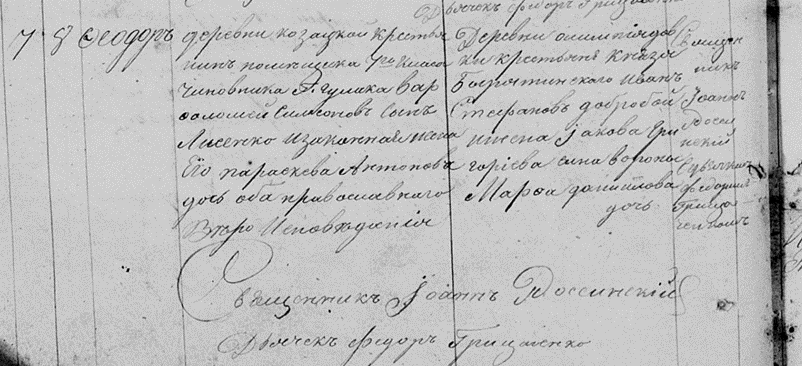 Дьячекъ Федоръ Грищенко
7 8 Ѳеодоръ
деревни козацкой крестья
нинъ помещика 7го класса
Чиновника Гулака Вар
ѳоломей Симеоновъ сынъ
Лисенко и законная жена
Его параскева Антонова
дочь оба православнаго
Вѣроисповѣданія
Деревни
ки крестьяне Князя
Иванъ
Стефановъ добровой
и жена Іакова Гри
горіева сына
Марѳа даниилова
дочь
Священ
никъ
Іоаннъ
Росси
нскій
съ дьячкомъ
Федоромъ
Грище
нкомъ
Священникъ Іоаннъ Россинскій
Дьячекъ Федоръ Грищенко